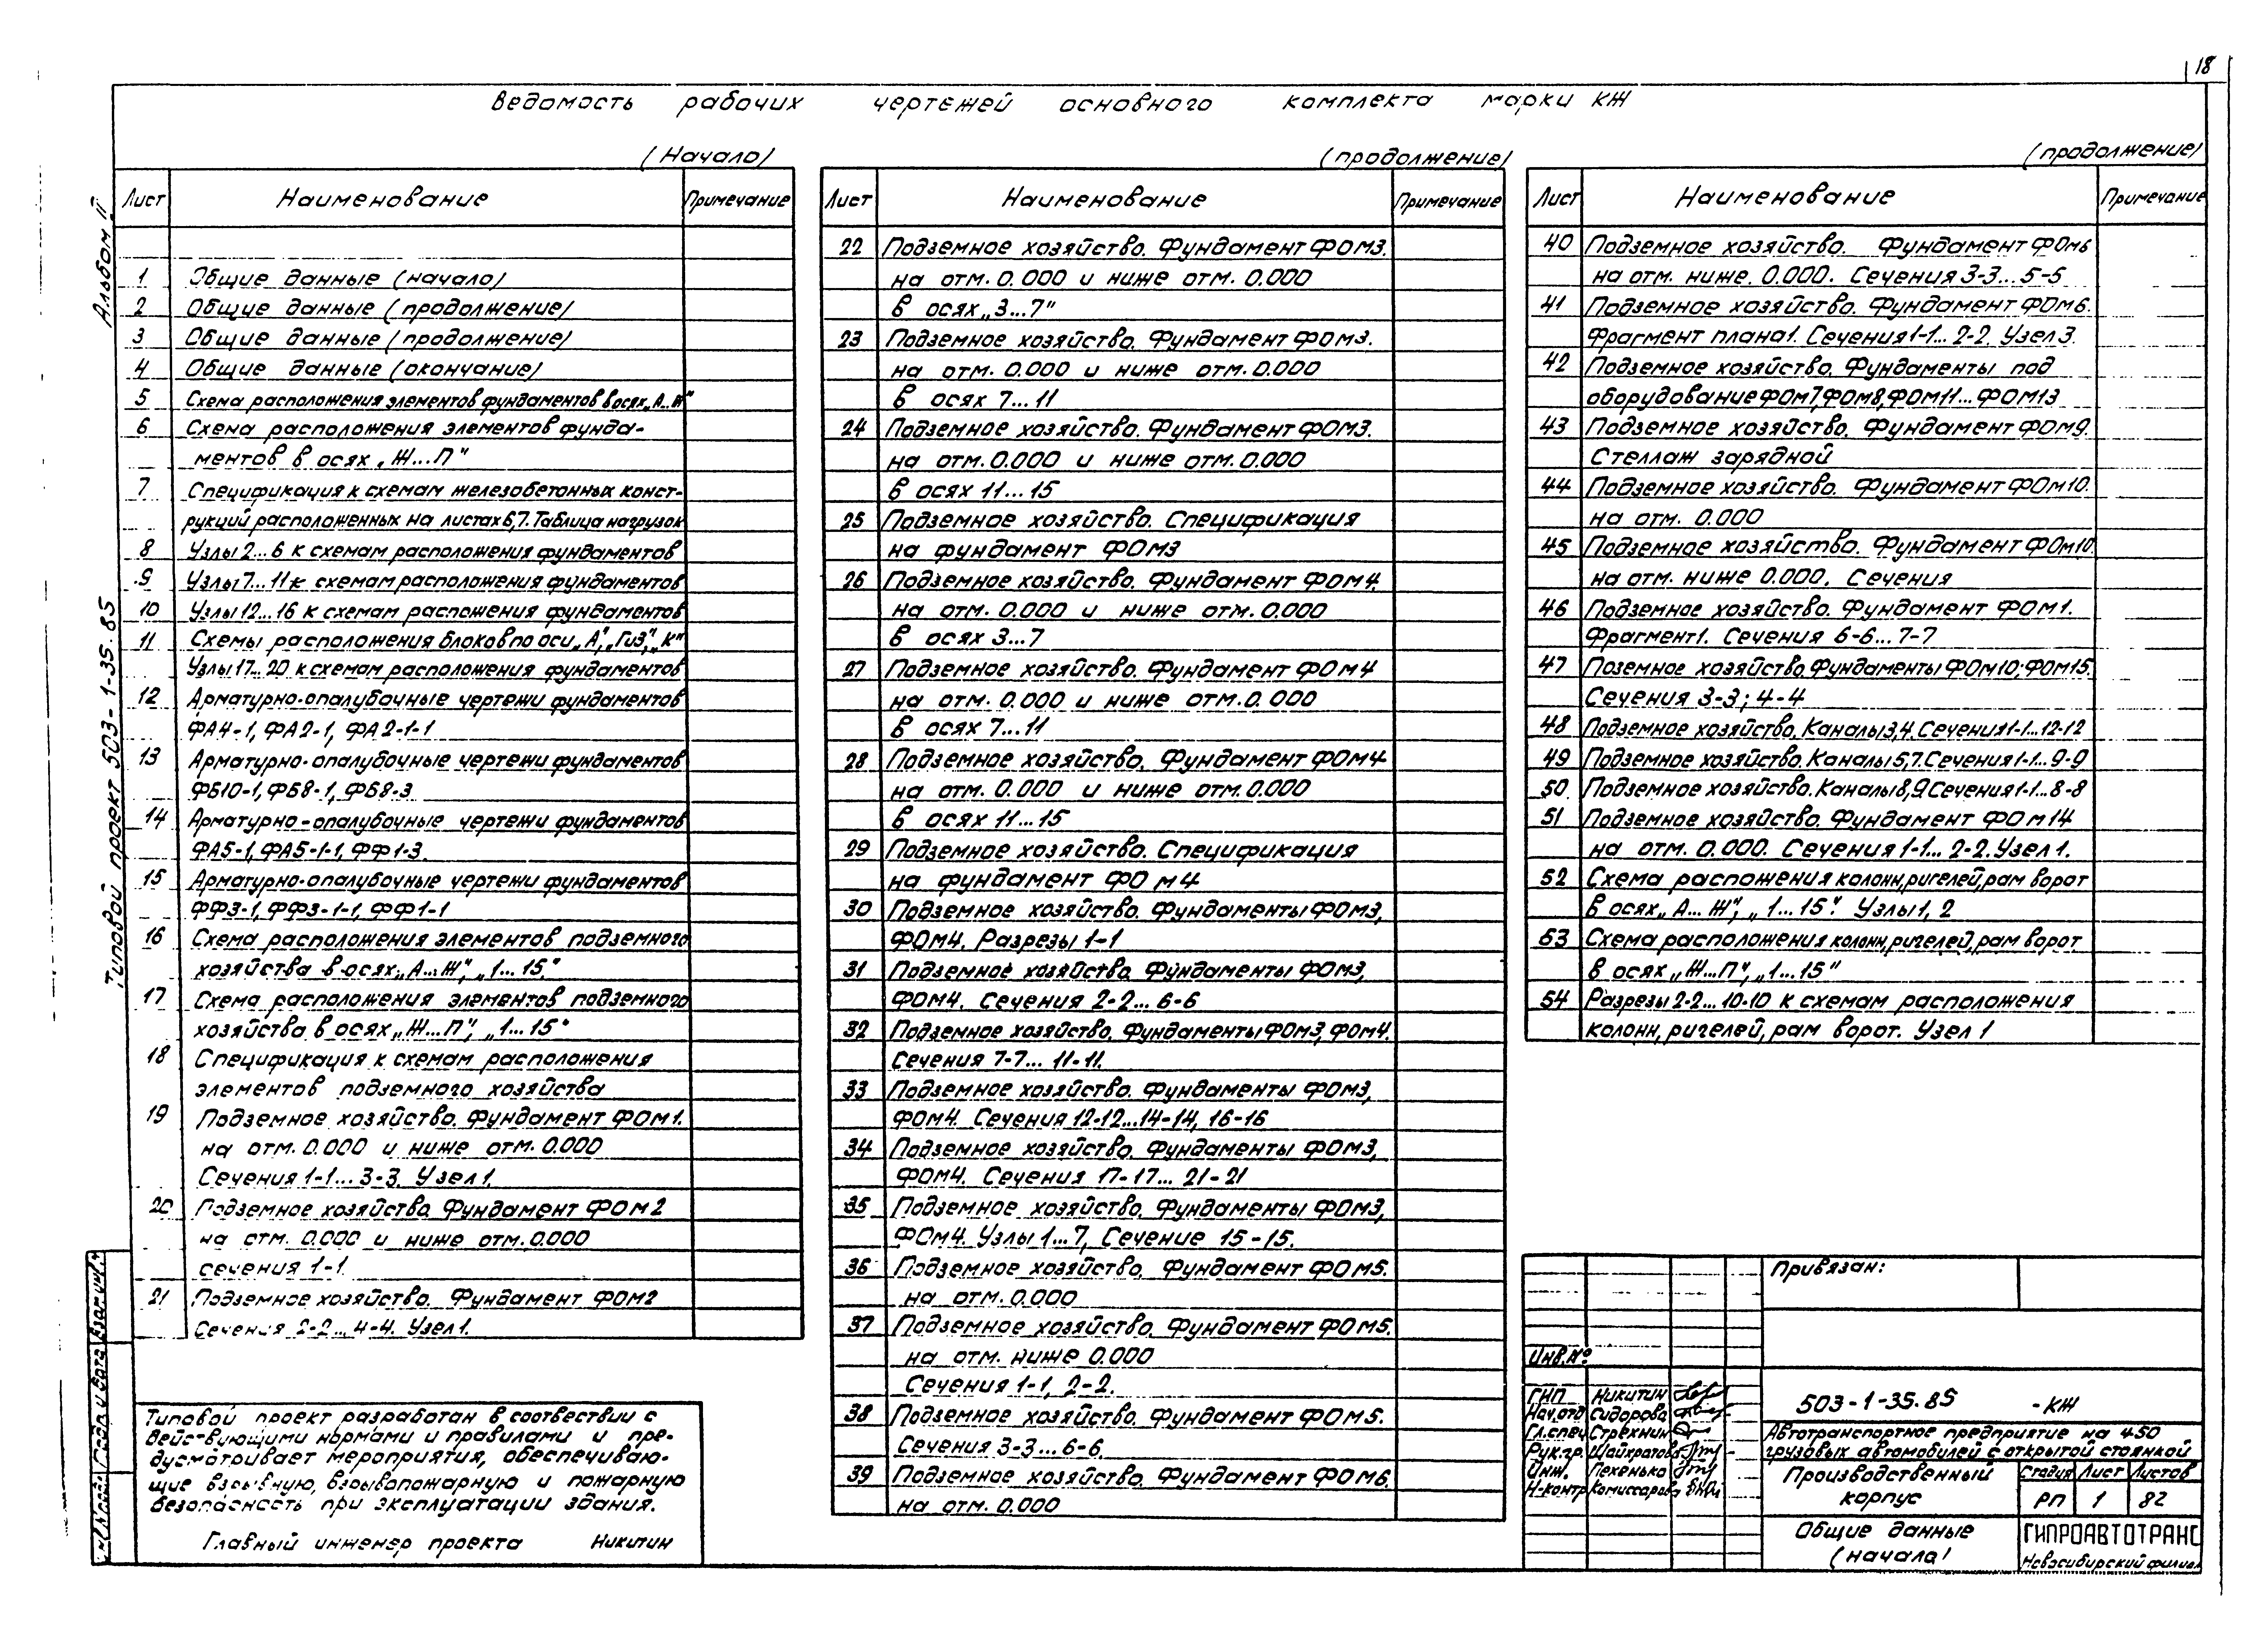 18
Ведомость рабочих чертежей основного комплекта марки КЖ
(Начало)
Лист Наименование Примечание
1 Общие данные (начало)
2 Общие данные (продолжение)
3 Общие данные (продолжение)
4 Общие данные (окончание)
5 Схема расположения элементов фундаментов в осях „А...Ж"
6 Схема расположения элементов фунда-
ментов в осях „Ж...П"
7 Спецификация к схемам железобетонных конст-
рукций расположенных на листах 6,7. Таблица нагрузок
8 Узлы 2...6 к схемам расположения фундаментов
9 Узлы 7...11 к схемам расположения фундаментов
10 Узлы 12...16 к схемам распожения фундаментов
11 Схемы расположения блоков по оси „А", „Г и З", „К"
Узлы 17...20 к схемам расположения фундаментов
12 Арматурно-опалубочные чертежи фундаментов
ФА4-1, ФА2-1, ФА2-1-1
13 Арматурно-опалубочные чертежи фундаментов
ФБ10-1, ФБ8-1, ФБ8-3
14 Арматурно-опалубочные чертежи фундаментов
ФА5-1, ФА5-1-1, ФФ1-3.
15 Арматурно-опалубочные чертежи фундаментов
ФФ3-1, ФФ3-1-1, ФФ1-1
16 Схема расположения элементов подземного
хозяйства в осях „А...Ж", „1...15."
17 Схема расположения элементов подземного
хозяйства в осях „Ж...П", „1...15"
18 Спецификация к схемам расположения
элементов подземного хозяйства
19 Подземное хозяйство. Фундамент ФОм1.
на отм. 0.000 и ниже отм. 0.000
Сечения 1-1... 3-3. Узел 1.
20 Подземное хозяйство. Фундамент ФОм2
на отм. 0.000 и ниже отм. 0.000
сечения 1-1.
21 Подземное хозяйство. Фундамент ФОм2
Сечения 2-2... 4-4. Узел 1.
(продолжение)
Лист Наименование Примечание
22 Подземное хозяйство. Фундамент ФОм3.
на отм. 0.000 и ниже отм. 0.000
в осях „3...7"
23 Подземное хозяйство. Фундамент ФОм3.
на отм. 0.000 и ниже отм. 0.000
в осях 7...11
24 Подземное хозяйство. Фундамент ФОм3.
на отм. 0.000 и ниже отм. 0.000
в осях 11...15
25 Подземное хозяйство. Спецификация
на фундамент ФОм3
26 Подземное хозяйство. Фундамент ФОм4.
на отм. 0.000 и ниже отм. 0.000
в осях 3...7
27 Подземное хозяйство. Фундамент ФОм4
на отм. 0.000 и ниже отм. 0.000
в осях 7...11
28 Подземное хозяйство. Фундамент ФОм4
на отм. 0.000 и ниже отм. 0.000
в осях 11...15
29 Подземное хозяйство. Спецификация
на фундамент ФОм4
30 Подземное хозяйство. Фундаменты ФОм3,
ФОм4. Разрезы 1-1
31 Подземное хозяйство. Фундаменты ФОм3,
ФОм4. Сечения 2-2... 6-6
32 Подземное хозяйство. Фундаменты ФОм3, ФОм4.
Сечения 7-7... 11-11.
33 Подземное хозяйство. Фундаменты ФОм3,
ФОм4. Сечения 12-12...14-14, 16-16
34 Подземное хозяйство. Фундаменты ФОм3,
ФОм4. Сечения 17-17... 21-21
35 Подземное хозяйство. Фундаменты ФОм3,
ФОм4. Узлы 1...7, Сечение 15-15.
36 Подземное хозяйство. Фундамент ФОм5.
на отм. 0.000
37 Подземное хозяйство. Фундамент ФОм5.
на отм. ниже 0.000
Сечения 1-1, 2-2.
38 Подземное хозяйство. Фундамент ФОм5.
Сечения 3-3... 6-6.
39 Подземное хозяйство. Фундамент ФОм6.
на отм. 0.000
(продолжение)
Лист Наименование Примечание
40 Подземное хозяйство. Фундамент ФОм6
на отм. ниже. 0.000. Сечения 3-3... 5-5
41 Подземное хозяйство. Фундамент ФОм6.
Фрагмент плана 1. Сечения 1-1... 2-2. Узел 3.
42 Подземное хозяйство. Фундаменты под
оборудование ФОм7, ФОм8, ФОм11... ФОм13
43 Подземное хозяйство. Фундамент ФОм9.
Стеллаж зарядной
44 Подземное хозяйство. Фундамент ФОм10.
на отм. 0.000
45 Подземное хозяйство. Фундамент ФОм10.
на отм. ниже 0.000. Сечения
46 Подземное хозяйство. Фундамент ФОм1.
Фрагмент 1. Сечения 6-6... 7-7
47 Поземное хозяйство. Фундаменты ФОм10; ФОм15.
Сечения 3-3; 4-4
48 Подземное хозяйство. Каналы 3,4. Сечения 1-1...12-12
49 Подземное хозяйство. Каналы 5,7. Сечения 1-1...9-9
50 Подземное хозяйство. Каналы 8,9. Сечения 1-1...8-8
51 Подземное хозяйство. Фундамент ФОм14
на отм. 0.000. Сечения 1-1... 2-2. Узел 1.
52 Схема распожения колонн, ригелей, рам ворот
в осях „А...Ж", „1...15". Узлы 1, 2
53 Схема расположения колонн, ригелей, рам ворот
в осях „Ж...П", „1...15"
54 Разрезы 2-2... 10-10 к схемам расположения
колонн, ригелей, рам ворот. Узел 1
Альбом II
Типовой проект 503-1-35.85
Взам. инв.
Подп. и дата
Типовой проект разработан в соотвествии с
действующими нормами и правилами и пре-
дусматривает мероприятия, обеспечиваю-
щие взрывную, взрывопожарную и пожарную
безопасность при эксплуатации здания.
Главный инженер проекта Никитин
Привязан:
Инв. №
ГИП Никитин
Нач.отд Сидорова
Гл.спец Стрехнин
Рук.гр. Шайхратова
Инж. Пехенько
Н-контр Комиссарова
503-1-35.85 -КЖ
Автотранспортное предприятие на 450
грузовых автомобилей с открытой стоянкой
Производственный
корпус
Стадия Лист Листов
РП 1 82
Общие данные
(начала)
ГИПРОАВТОТРАНС
Новосибирский филиал